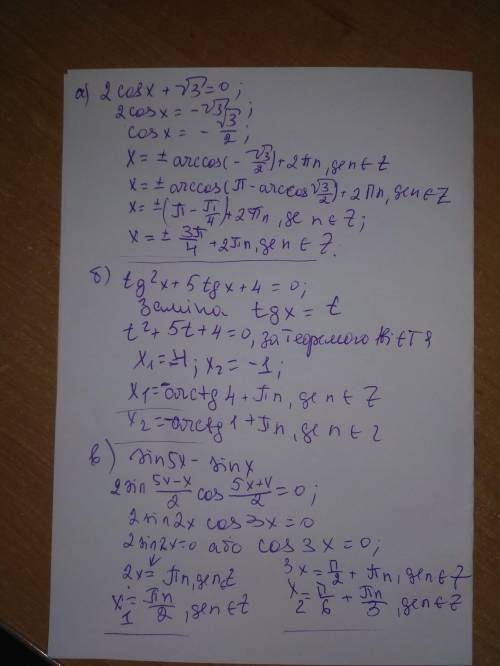 а) 2cosx + √3 = 0;
2cosx = -√3;
cosx = - √3/2;
x = ± arccos(- √3/2) + 2πn, де n ∈ Z
x = ± arccos(π - arccos √3/2) + 2πn, де n ∈ Z
x = ± (π - π/4) + 2πn, де n ∈ Z;
x = ± 3π/4 + 2πn, де n ∈ Z.
б) tg²x + 5tgx + 4 = 0;
Заміна tgx = t
t² + 5t + 4 = 0, за теоремою Вієта
x₁ = -4; x₂ = -1;
x₁ = -arctg 4 + πn, де n ∈ Z
x₂ = -arctg 1 + πn, де n ∈ Z
в) sin5x - sinx
2sin (5x-x)/2 cos (5x+x)/2 = 0;
2sin2x cos3x = 0
2sin2x = 0 або cos3x = 0;
2x = πn, де n ∈ Z 3x = π/2 + πn, де n ∈ Z
x₁ = πn/2, де n ∈ Z x₂ = π/6 + πn/3, де n ∈ Z